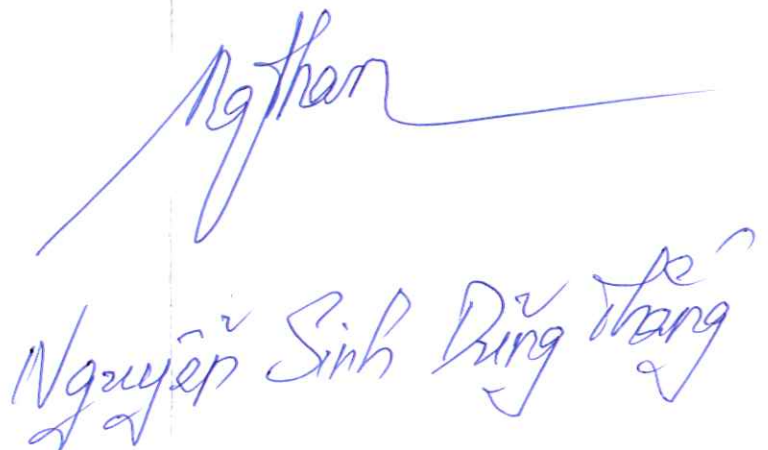 Ngthan
Nguyễn Sinh Dũng Thắng